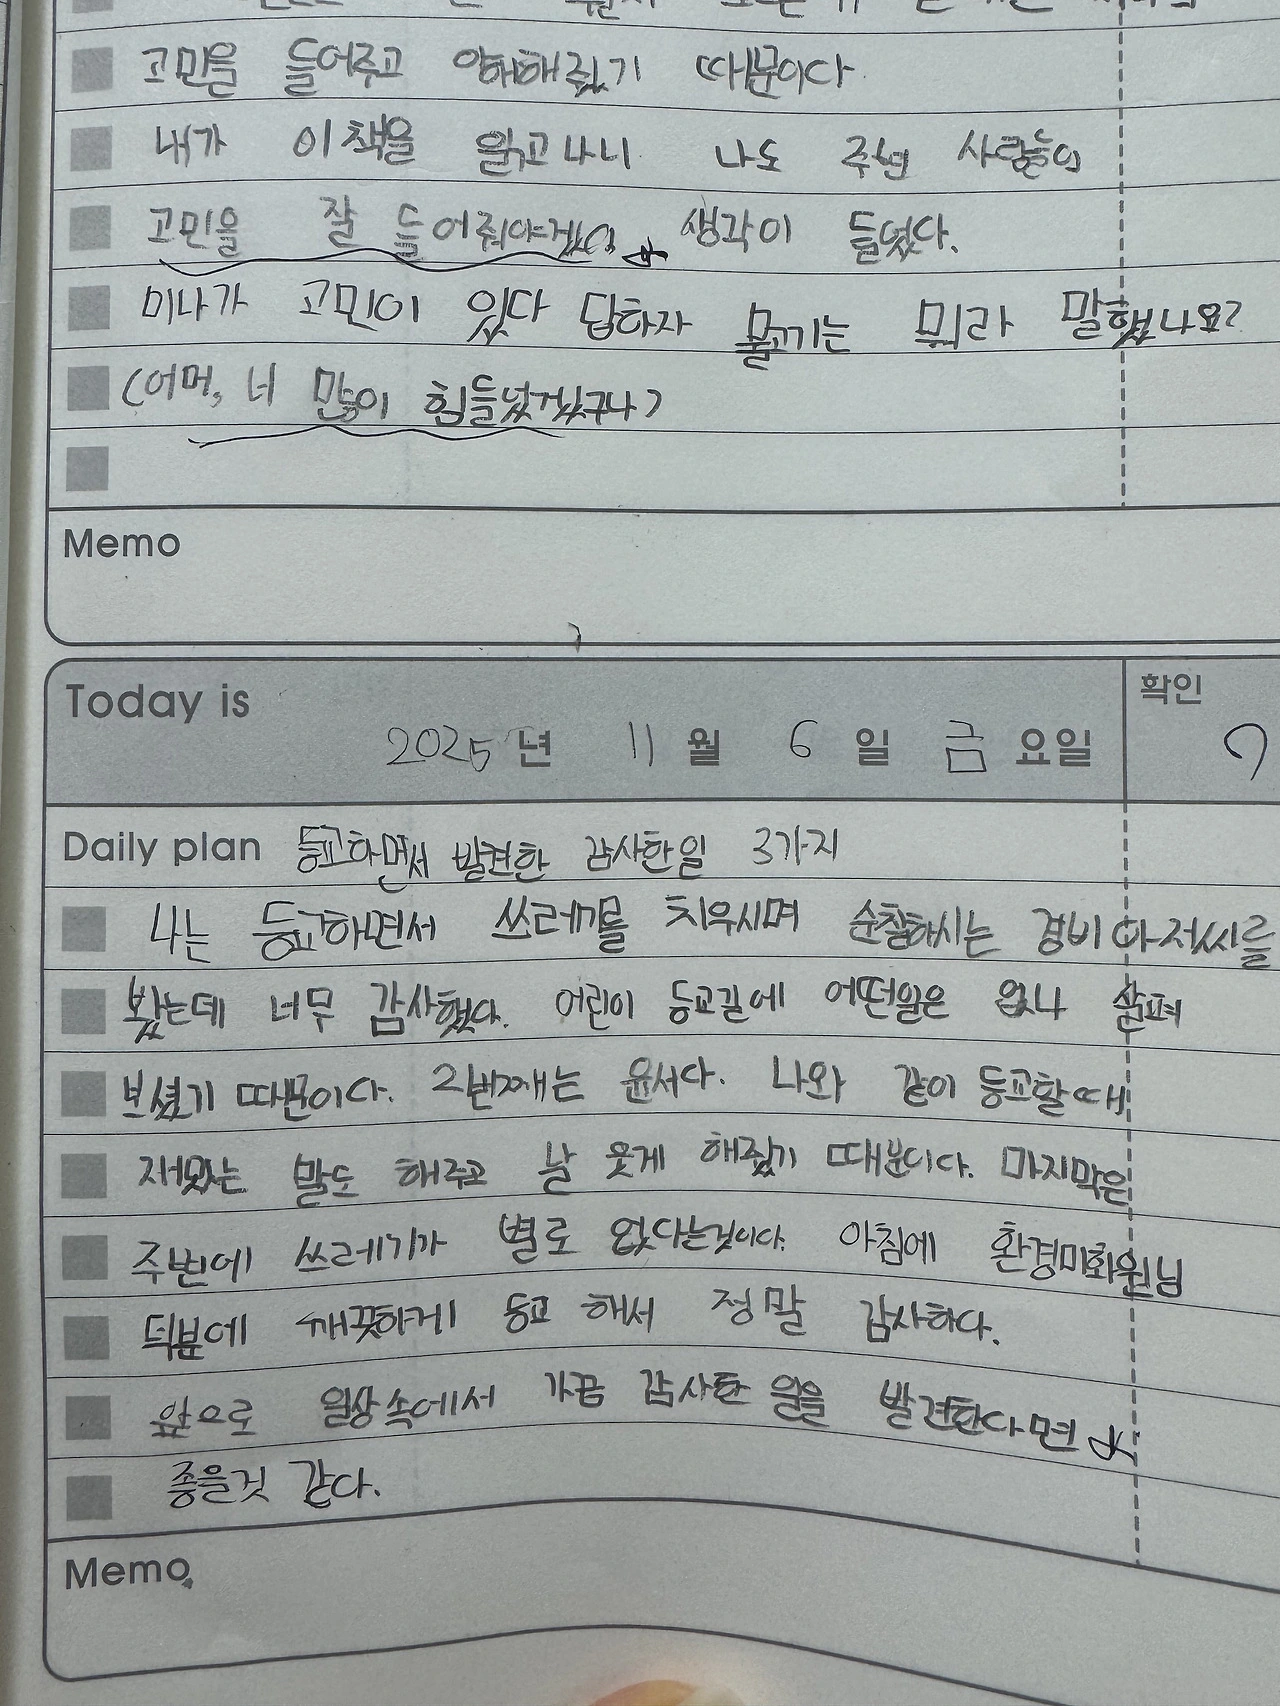 고민을 들어주고 이해해줬기 때문이다
내가 이 책을 읽고나니 나도 주변 사람들의
고민을 잘 들어줘야겠 생각이 들었다.
미나가 고민이 있다 답하자 물고기는 뭐라 말했나요?
(어머, 너 많이 힘들었겠구나)
Memo
Today is 2025 년 11 월 6 일 금 요일 확인
Daily plan 등교하면서 발견한 감사한일 3가지
나는 등교하면서 쓰레기를 치우시며 순찰하시는 경비 아저씨를
봤는데 너무 감사했다. 어린이 등교길에 어떠일은 없나 살펴
보셨기 때문이다. 2번째는 윤서다. 나와 같이 등교할때
재밌는 말도 해주고 날 웃게 해줬기 때문이다. 마지막은
주변에 쓰레기가 별로 없다는것이다. 아침에 환경미화원님
덕분에 깨끗하게 등교 해서 정말 감사하다.
앞으로 일상속에서 가끔 감사한 일을 발견한다면
좋을것 같다.
Memo